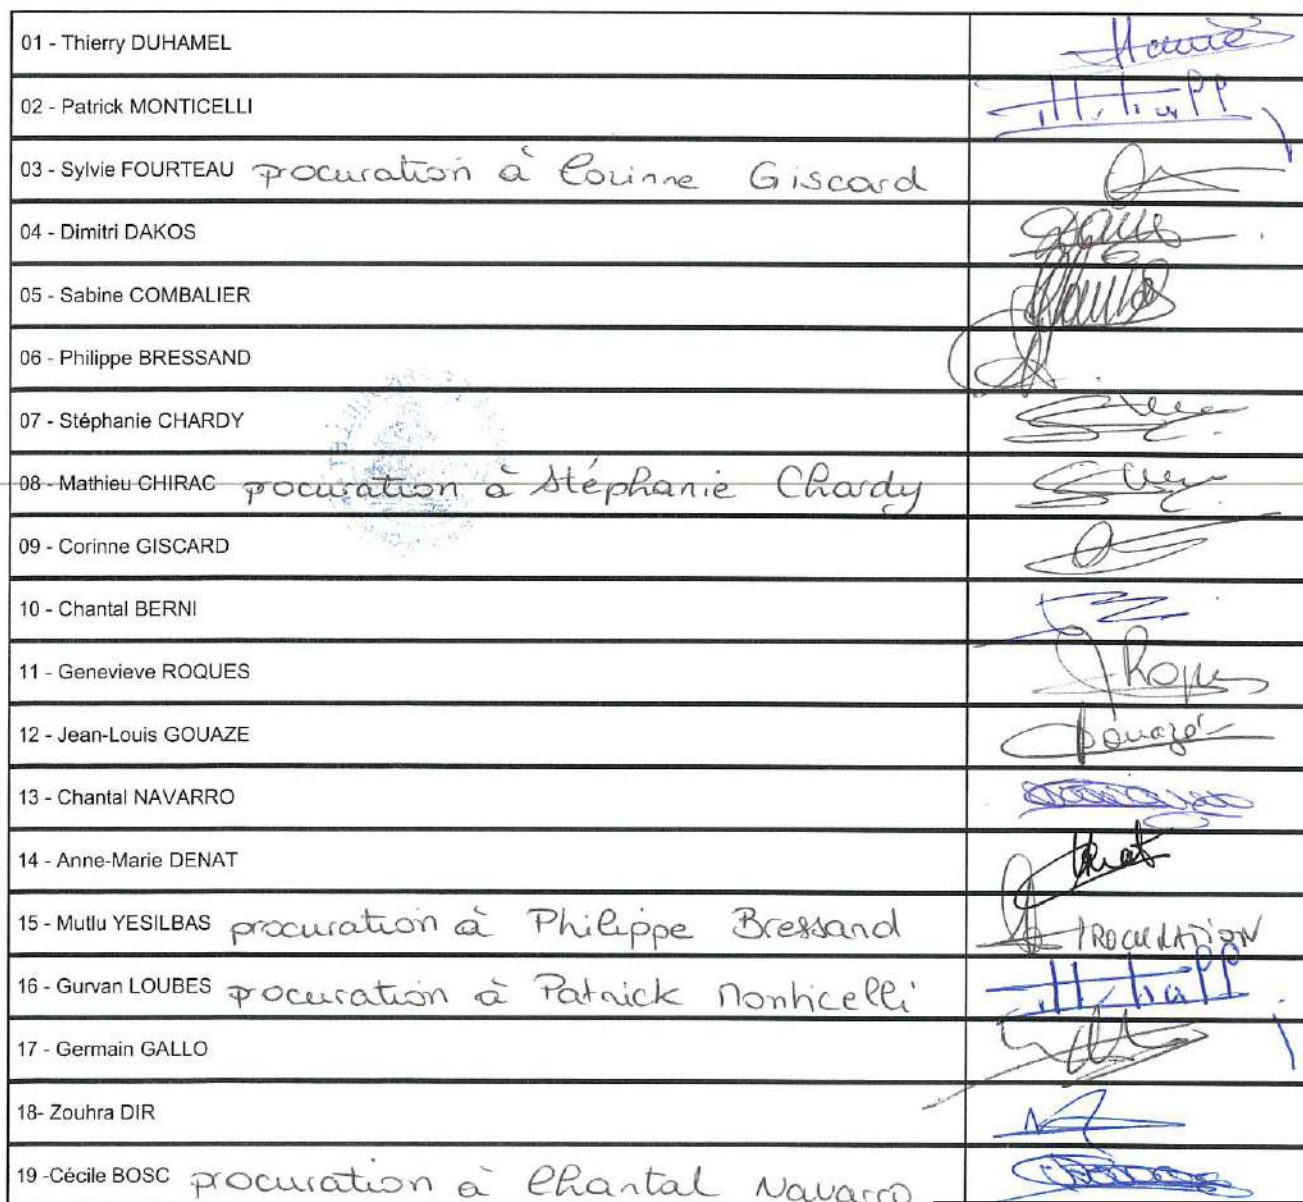 01 - Thierry DUHAMEL
02 - Patrick MONTICELLI
03 - Sylvie FOURTEAU procuration à Corinne Giscard
04 - Dimitri DAKOS
05 - Sabine COMBALIER
06 - Philippe BRESSAND
07 - Stéphanie CHARDY
08 - Mathieu CHIRAC procuration à Stéphanie Chardy
09 - Corinne GISCARD
10 - Chantal BERNI
11 - Genevieve ROQUES
12 - Jean-Louis GOUAZE Gouazé
13 - Chantal NAVARRO
14 - Anne-Marie DENAT Denat
15 - Mutlu YESILBAS procuration à Philippe Bressand PROCURATION
16 - Gurvan LOUBES procuration à Patrick Monticelli
17 - Germain GALLO
18- Zouhra DIR
19 -Cécile BOSC procuration à Chantal Navarro